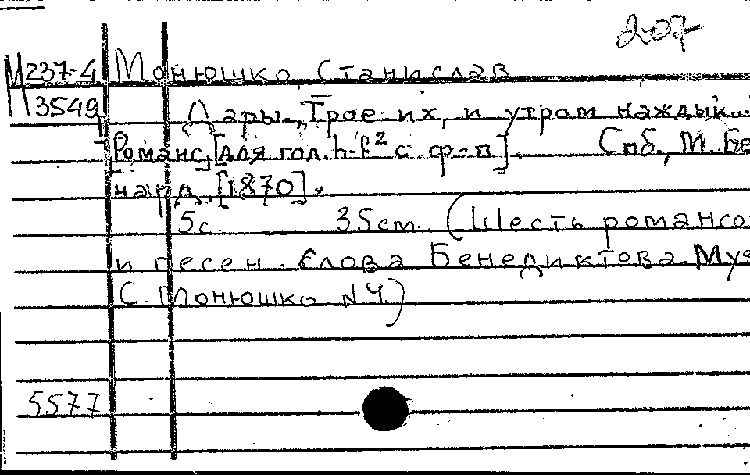 207
М 237-4 Монюшко, Станислав
3549 Дары. "Трое их, и утром каждый...
Романс, [для гол. h-f² с ф-п]. Спб., М. Бе
нард, [1870].
5с. 35см. (Шесть романсо
и песен. Слова Бенедиктова. Муз
С. Монюшко N 4)
5577